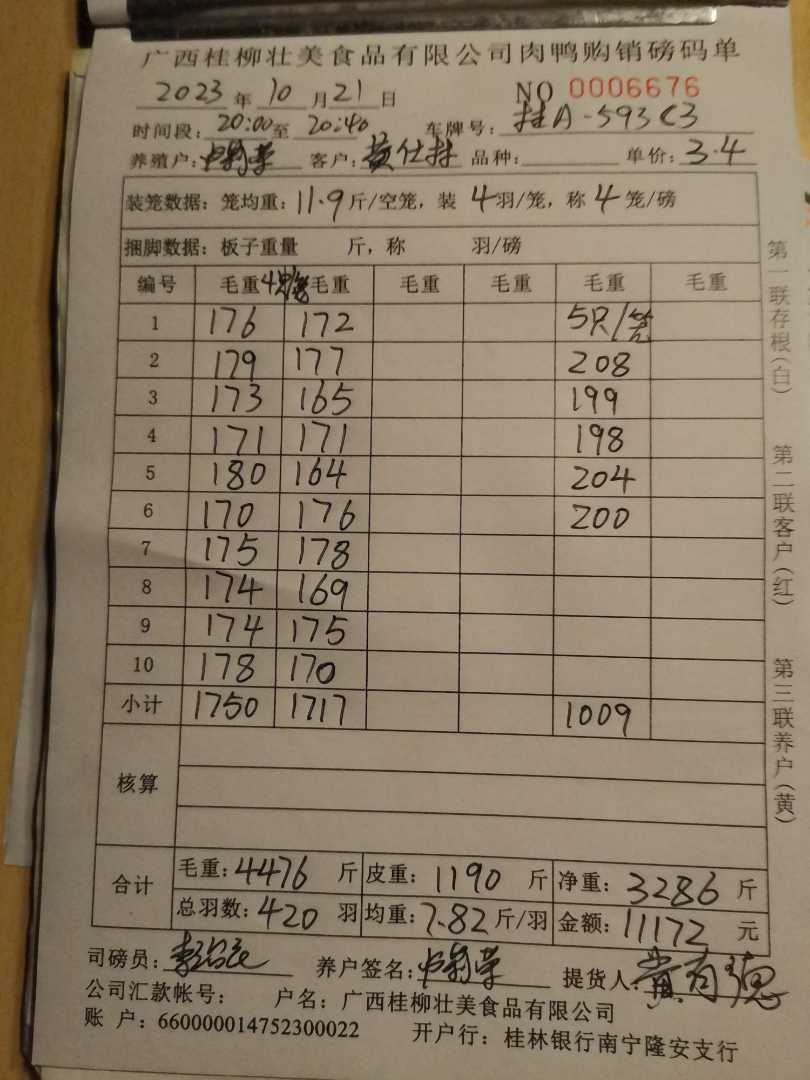 广西桂柳壮美食品有限公司肉鸭购销磅码单
2023年10月21日 NO 0006676
时间段:20:00至20:40 车牌号:桂A-593C3
养殖户: 客户:黄仕林 品种: 单价:3.4
装笼数据:笼均重:11.9斤/空笼,装4羽/笼,称4笼/磅
捆脚数据:板子重量 斤,称 羽/磅
编号 毛重 毛重 毛重 毛重 毛重 毛重
1 176 172 5只/笼
2 179 177 208
3 173 165 199
4 171 171 198
5 180 164 204
6 170 176 200
7 175 178
8 174 169
9 174 175
10 178 170
小计 1750 1717 1009
核算
合计 毛重:4476斤 皮重:1190斤 净重:3286斤
总羽数:420羽 均重:7.82斤/羽 金额:11172元
司磅员: 养户签名: 提货人:黄有德
公司汇款帐号: 户名:广西桂柳壮美食品有限公司
账 户:660000014752300022 开户行:桂林银行南宁隆安支行
第一联存根(白) 第二联客户(红) 第三联养户(黄)